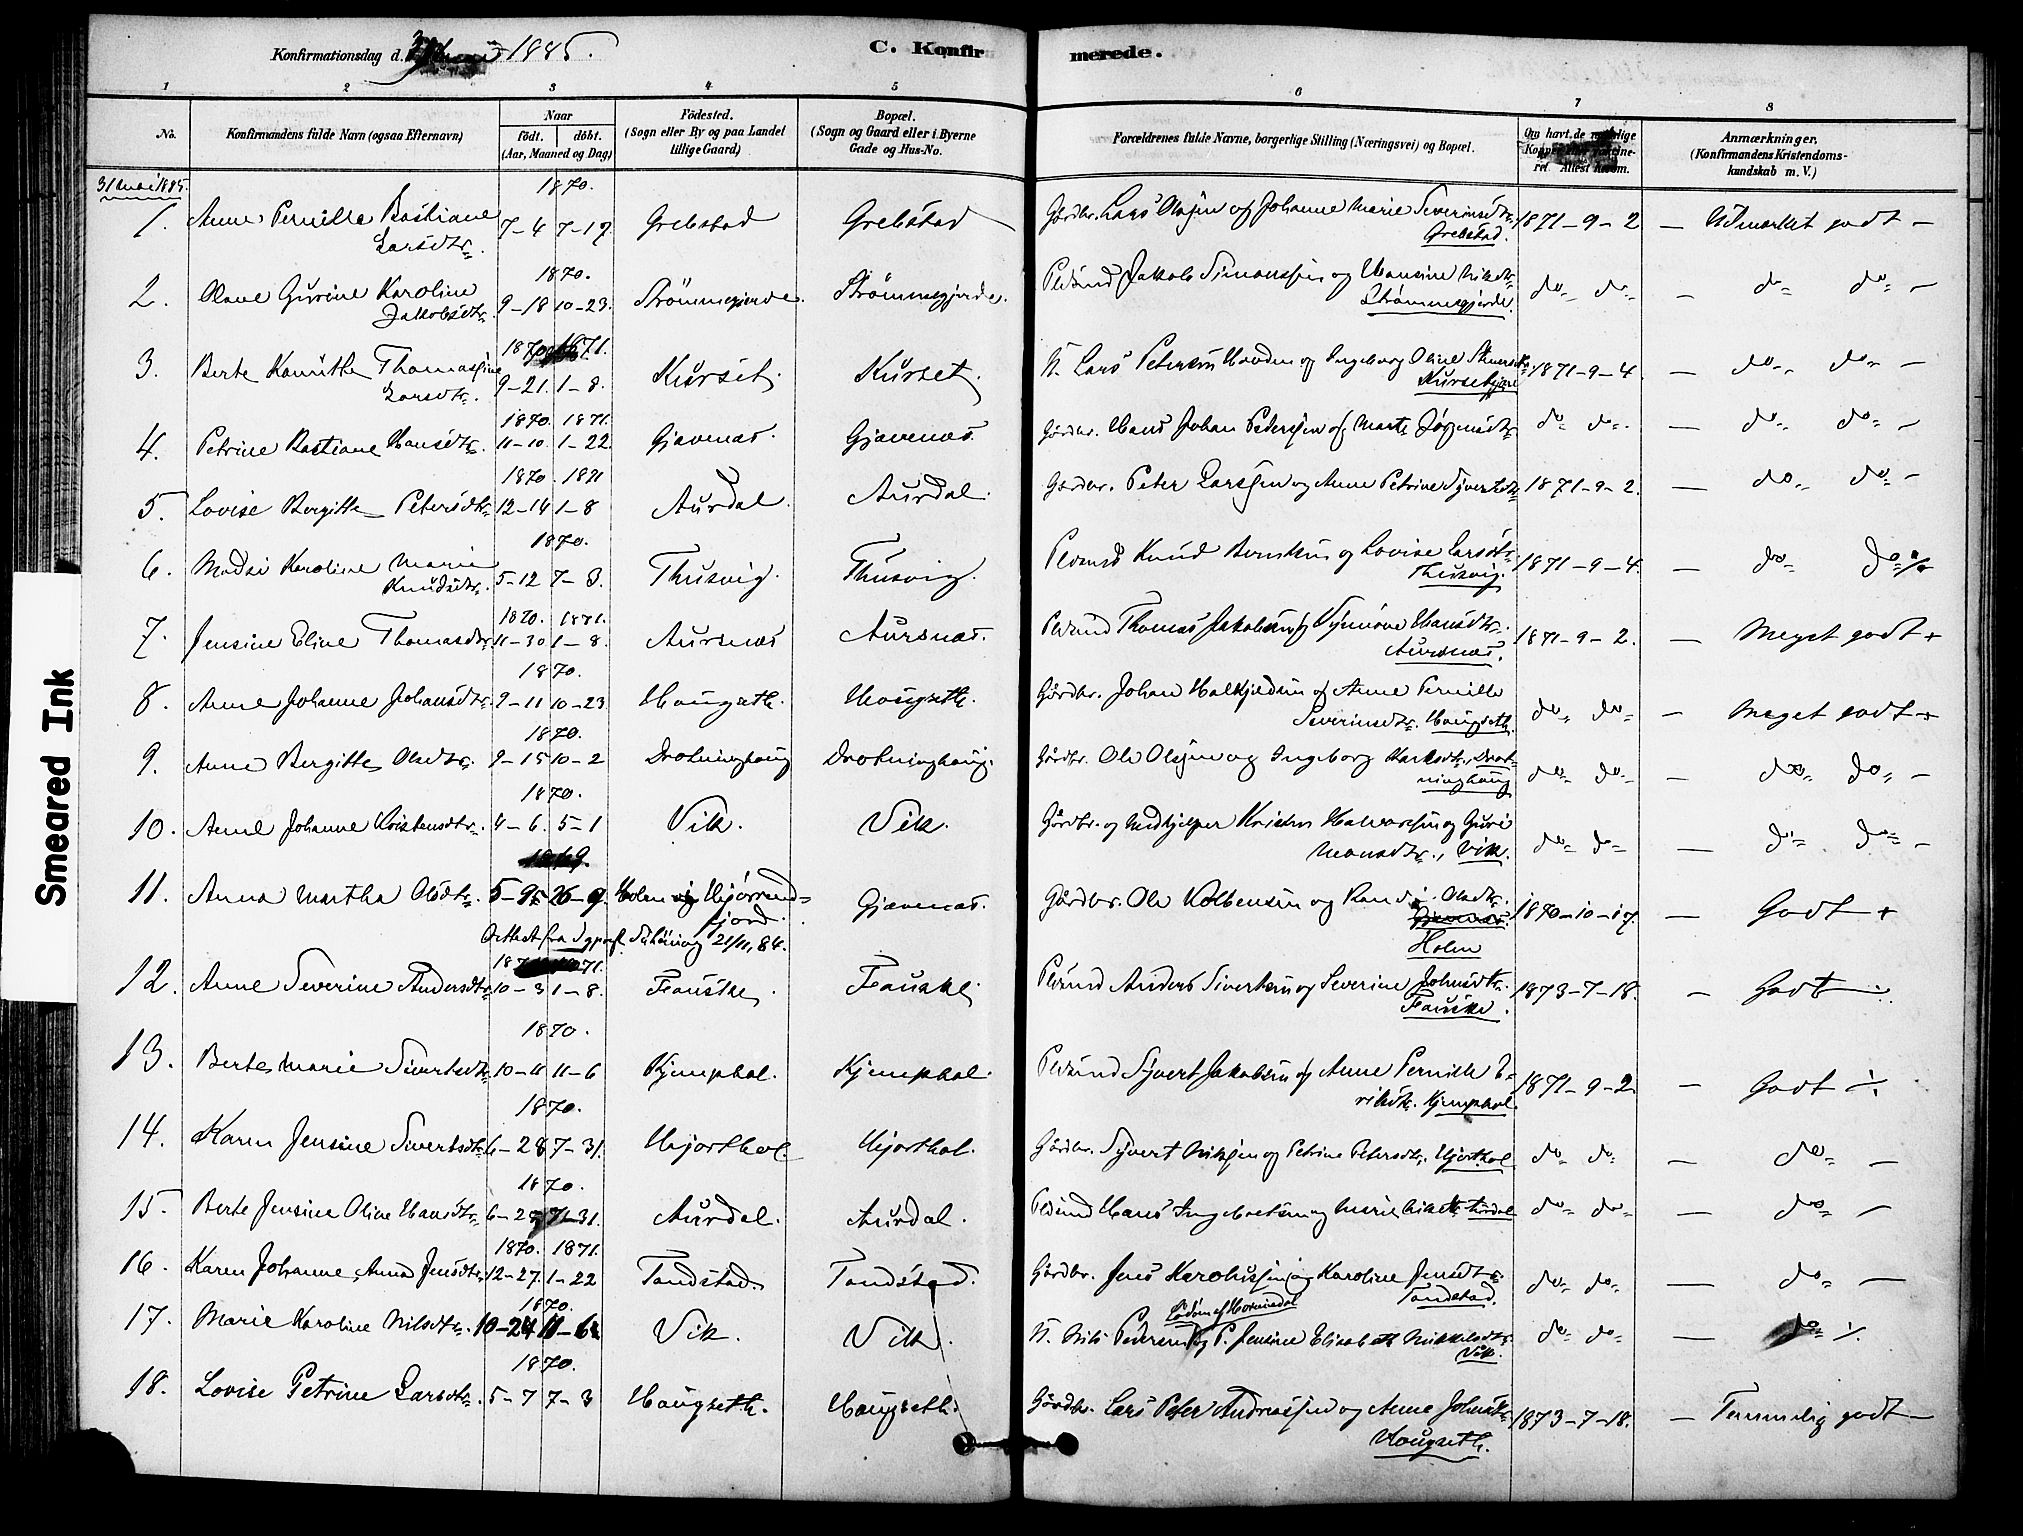 Konfirmationsdag d. 1885.
C. Konfirmerede.
1 2 3 4 5 6 7 8
No.
Konfirmandens fulde Navn (ogsaa Efternavn)
Naar
födt. döbt.
(Aar, Maaned og Dag)
Födested.
(Sogn eller By og paa Landet
tillige Gaard)
Bopæl.
(Sogn og Gaard eller i Byerne
Gade og Hus-No.
Forældrenes fulde Navne, borgerlige Stilling (Næringsvei) og Bopæl.
Om havt de naturlige
Anmærkninger.
(Konfirmandens Kristendoms-
kundskab m. V.)
31 mai 1885.
1870.
1. Anne Pernille Bastiane 7-4 7-17 Grebstad Grebstad Gårdbr. Lars Olsen og Johanne Marie Severinsdtr. 1871-9-2 — Udmærket godt —
Larsdtr. Grebstad.
1870.
2. Olave Gurine Karoline 9-18 10-23. Strömmegjerde. Strömmegjerde. Plsmd Jakob Simonssen og Hansine Nilsdtr. do do — do do —
Jakobsdtr. Strömmegjerde.
1870 1871.
3. Berte Knutha Thomassine 9-21. 1-8. Kurset. Kurset. Lars Petersen Hovden og Ingeborg Oline 1871-9-4. — do do —
Larsdtr.
1870. 1871.
4. Petrine Bastiane Hansdtr. 11-10. 1-22. Gjævenæs. Gjævenæs. Gårdbr. Hans Johan Pedersen og Marte Jørgensdtr. do do. — do do —
1870. 1871
5. Lovise Bergitte Petersdtr. 12-14 1-8 Aurdal. Aurdal. Gårdbr. Peter Larssen og Anne Petrine Syvertsdtr. 1871-9-2. — do do —
1870.
6. Madsi Karoline Marie 5-12 7-3. Thusvig. Thusvig. Plsmd Knud Berntsen og Lovise Larsdtr. 1871-9-4. — do do
Knudsdtr. Thusvig.
1870. 1871.
7. Jensine Eline Thomasdtr. 11-30 1-8. Aursnæs Aursnæs. Plsmd Thomas Jakobsen og Synnøve Hansdtr. 1871-9-2. — Meget godt +
Aursnæs.
1870.
8. Anne Johanne Johansdtr. 9-11 10-23 Haugseth. Haugseth. Gårdbr. Johan Halkjeldsen og Anne Pernille do do — Meget godt +
Severinsdtr. Haugseth
1870.
9. Anne Bergitte Olsdtr. 9-15 10-2 Drotninghaug Drotninghaug. Gårdbr. Ole Olsen og Ingeborg Drot- do do — do do —
ninghaug
1870.
10. Anne Johanne Kristensdtr. 4-6. 5-1 Vik. Vik. Gårdbr. og Medhjelper Kristen Halvorsen og Guri do do — do do —
Monsdtr., Vik.
1869.
11. Anna Martha Olsdtr. Holen i Hjørrend- Gjævenæs. Gårdbr. Ole Kolbensen og Randi Olsdtr. 1870-10-17. — Godt +
fjord. Holen
Attest fra Sgprst. 21/11, 84.
1871.
12. Anne Severine Andersdtr. 10-3 1-8. Fauske Fauske Plsmd Anders Sivertsen og Severine Johnsdtr. 1873-7-18. — Godt
Fauske.
1870.
13. Berte Marie Sivertsdtr. 10-11 11-6 Kjemphol. Kjemphol. Plsmd Syvert Jakobsen og Anne Pernille E- 1871-9-2 — Godt ·/·
riksdtr. Kjemphol.
1870.
14. Karen Jensine Sivertsdtr. 6-28 7-31. Hjorthol. Hjorthol. Gårdbr. Syvert Nilssen og Petrine Petersdtr. Hjorthol do do — do —
1870.
15. Berte Jensine Oline Hansdtr. 7-31. Aurdal. Aurdal. Plsmd Hans Ingebretsen og Marie Aurdal do do — do —
1870. 1871.
16. Karen Johanne Anna Jensdtr. 12-27. 1-22 Tandstad. Tandstad. Gårdbr. Jens Karolussen og Karoline Jensdtr. do do — do —
Tandstad.
1870.
17. Marie Karoline Nilsdtr. 10-24 11-6 Vik. Vik. Nils Pedersen og P. Jensine Elisabeth Mikkelsdtr. do do — do ·/·
Vik.
1870.
18. Lovise Petrine Larsdtr. 5-7 7-3 Haugseth. Haugseth. Gårdbr. Lars Peter Andreassen og Anne Johnsdtr. 1873-7-18. — Temmelig godt —
Haugseth.
Smeared Ink